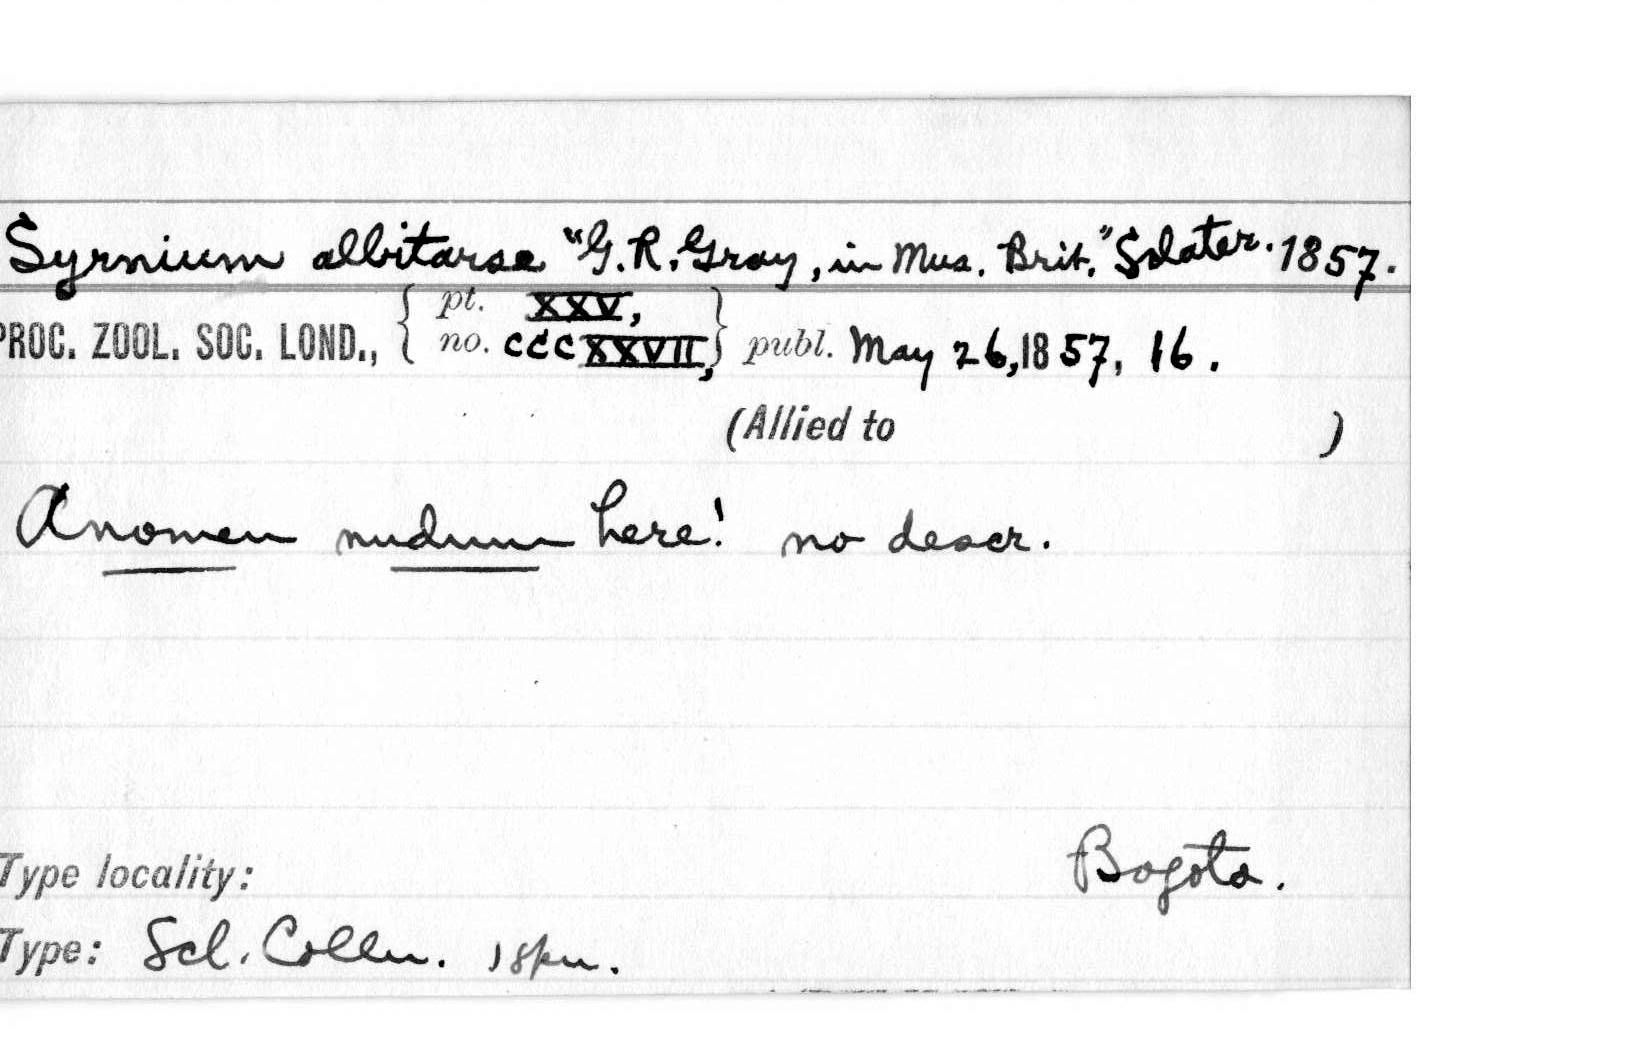 Syrnium albitarse "G. R. Gray, in Mus. Brit." Sclater. 1857.
PROC. ZOOL. SOC. LOND., { pt. XXV, no. CCCXXVII, } publ. May 26, 1857, 16.
(Allied to )
A nomen nudum here! no descr.
Type locality: Bogota.
Type: Scl. Colln. 1 spn.